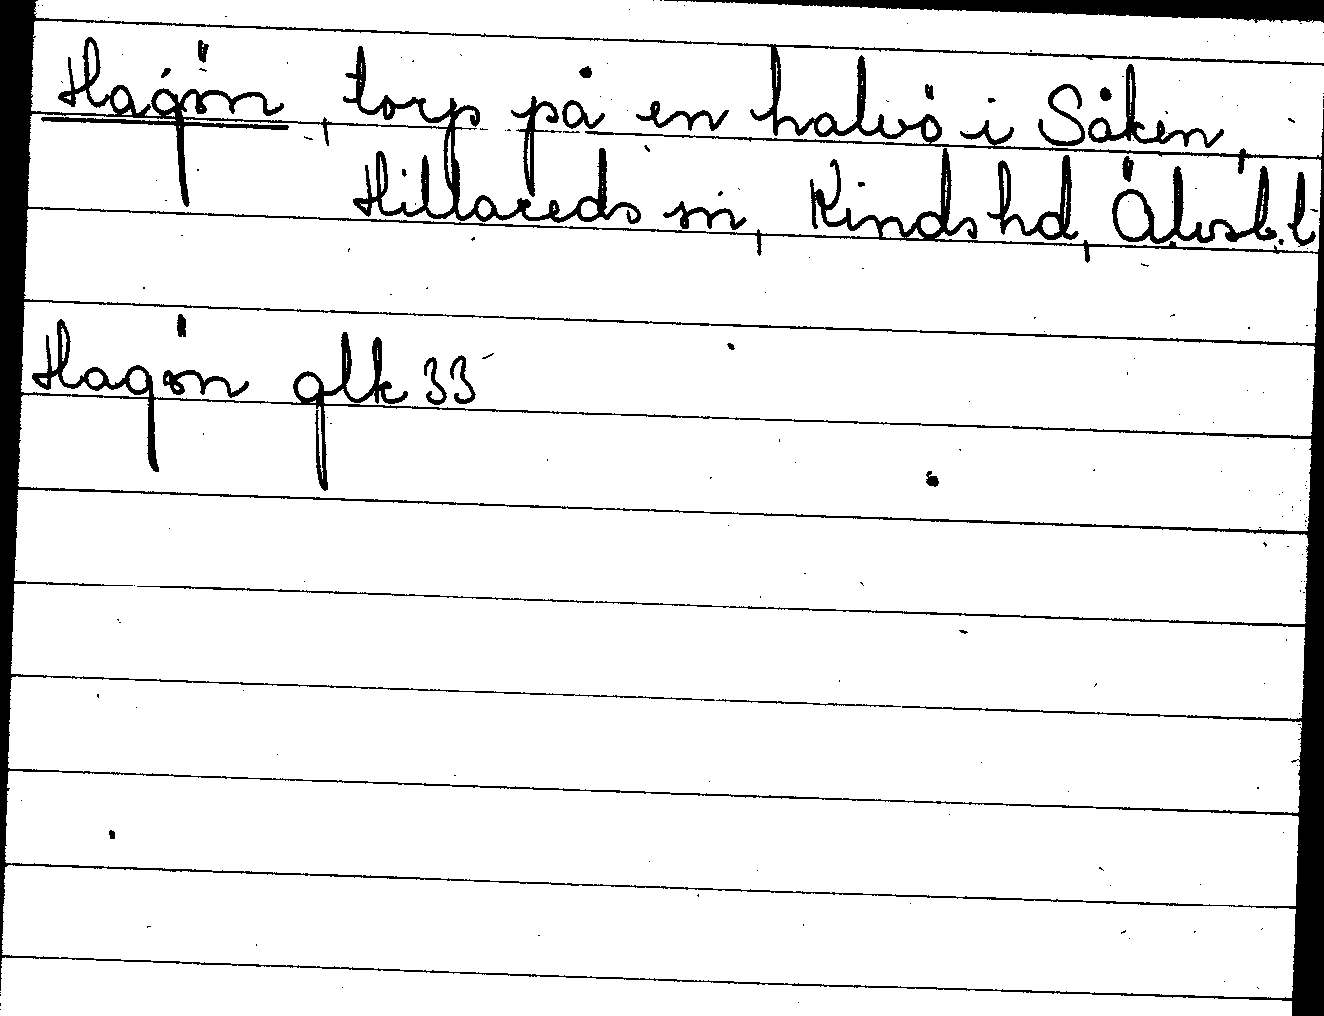 Hagön, torp på en halvö i Såken,
Hillareds sn, Kinds hd, Älvsb. l
Hagön glk 33